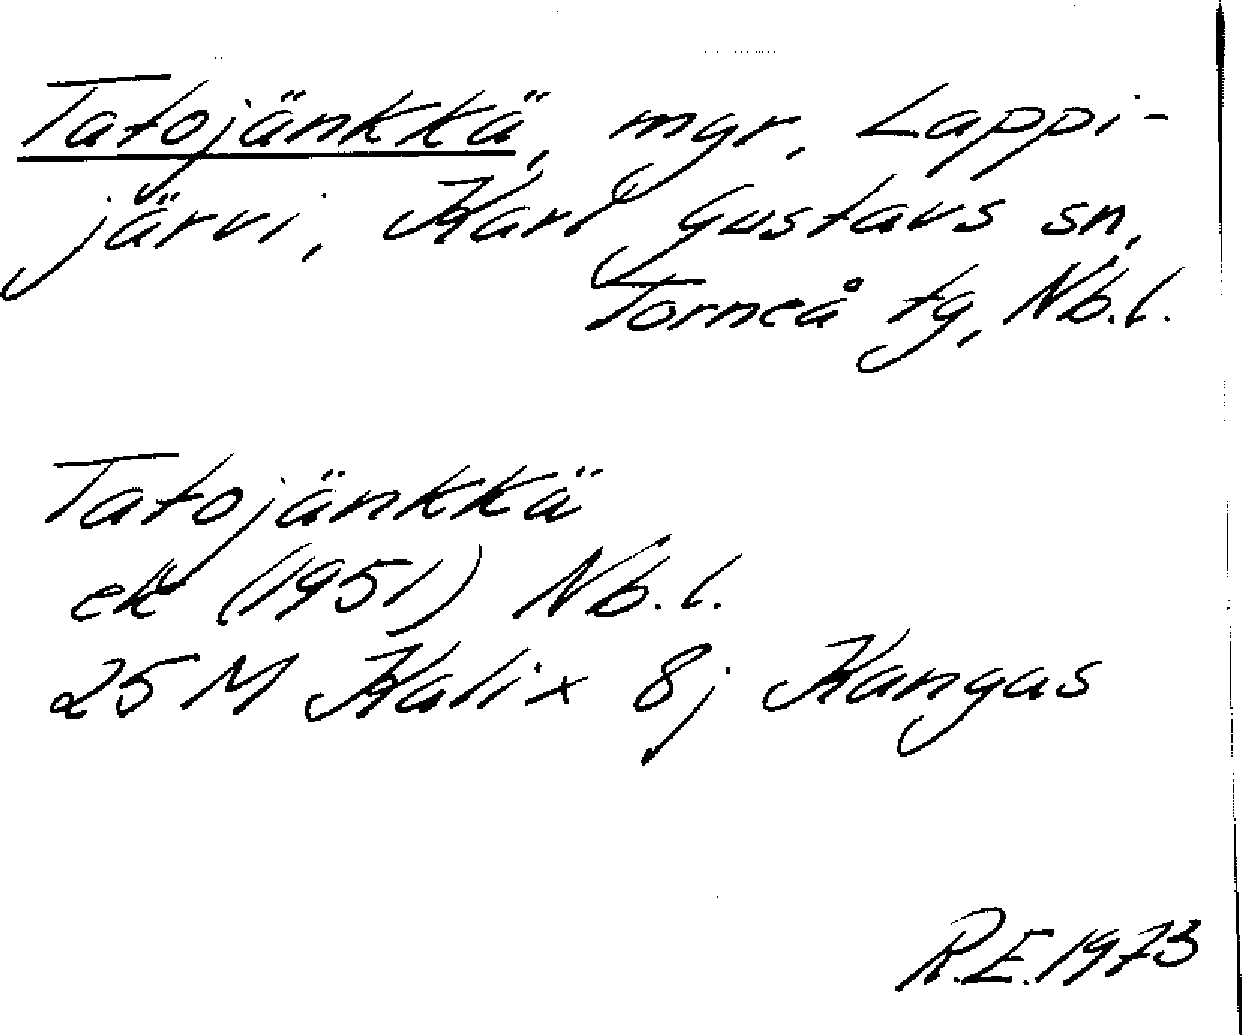 Tatojänkkä, mgr, Lappi-
järvi, Karl Gustavs sn,
Torneå tg, Nb.l.
Tatojänkkä
ek (1951) Nb.l.
25 M Kalix 8j Kangas
R.E. 1973